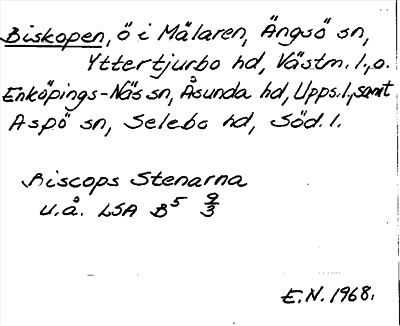 Biskopen, ö i Mälaren, Ängsö sn,
Yttertjurbo hd, Västm. l., o.
Enköpings-Näs sn, Åsunda hd, Upps. l., samt
Aspö sn, Selebo hd, Söd. l.
Biscops Stenarna
u.å. LSA B⁵ 9/3
E.N. 1968.